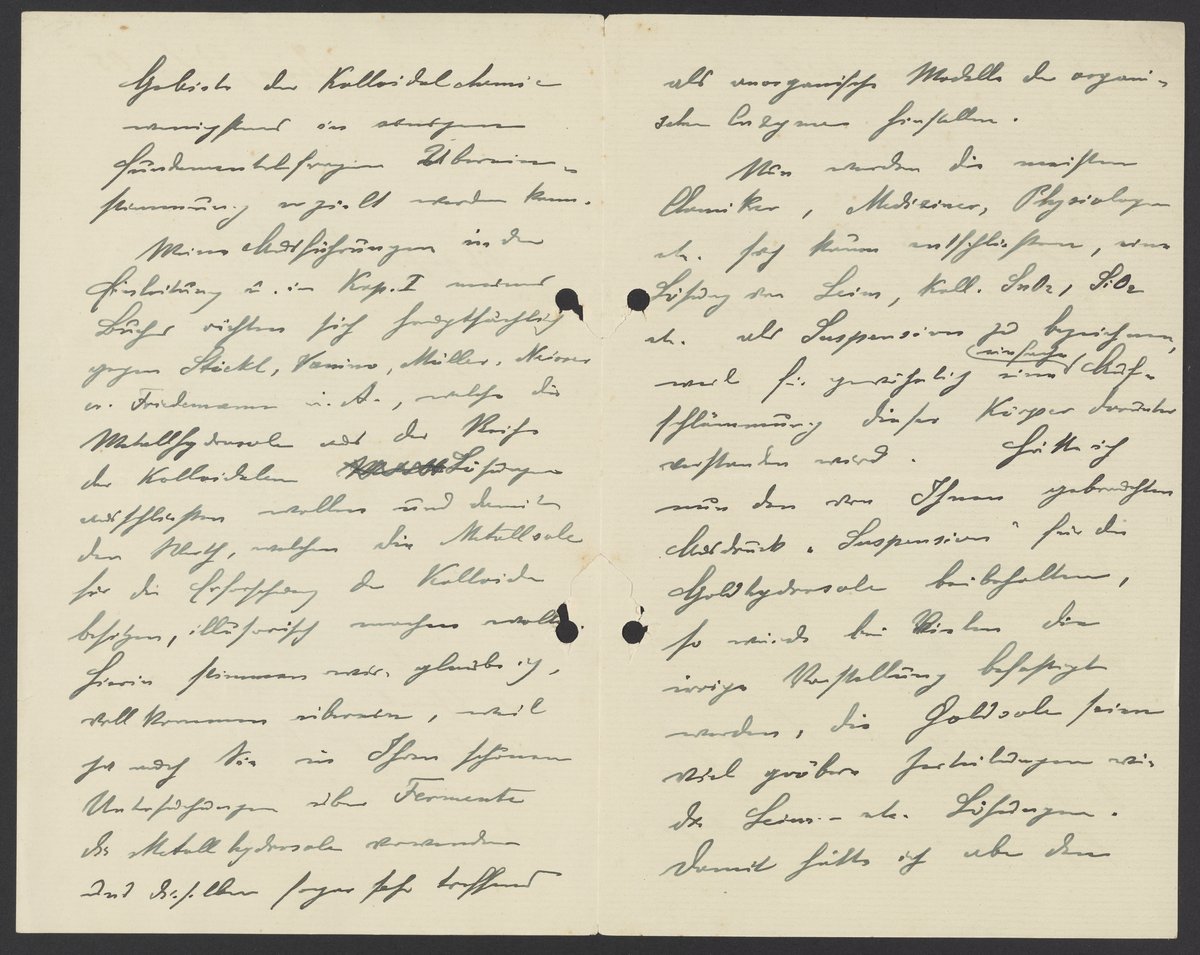 Gebiete der Kolloidalchemie
wenigstens in einigen
Fundamentalfragen Überein-
stimmung erzielt werden kann.
Meine Ausführungen in der
Einleitung u. im Kap. I meines
Buches richten sich hauptsächlich
gegen Stöckl, Vanino, Müller, Neisser
u. Friedemann u. A., welche die
Metallhydrosole aus der Reihe
der Kolloidalen Lösungen
ausschliessen wollen und damit
den Werth, welchen die Metallsole
für die Erforschung der Kolloide
besitzen, illusorisch machen wollen.
Hierin stimmen wir, glaube ich,
vollkommen überein, weil
ja auch Sie in Ihren schönen
Untersuchungen über Fermente
die Metallhydrosole verwenden
und dieselben sogar sehr treffend
als anorganische Modelle der organi-
schen Enzymen hinstellen.
Nun werden die meisten
Chemiker, Mediziner, Physiologen
etc. sich kaum entschliessen, eine
Lösung von Leim, koll. SnO2, SiO2
etc. als Suspension zu bezeichnen,
weil für gewöhnlich eine einfache Auf-
schlämmung dieser Körper darunter
verstanden wird. Hätte ich
nun den von Ihnen gebrauchten
Ausdruck „Suspension" für die
Goldhydrosole beibehalten,
so würde bei Vielen die
irrige Vorstellung befestigt
werden, die Goldsole seien
viel gröbere Zerteilungen wie
die Leim- etc. Lösungen.
Damit hätte ich aber den